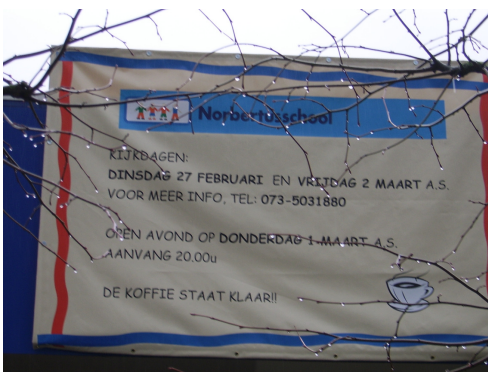 Norbertusschool
KIJKDAGEN:
DINSDAG 27 FEBRUARI EN VRIJDAG 2 MAART A.S.
VOOR MEER INFO, TEL: 073-5031880
OPEN AVOND OP DONDERDAG 1 MAART A.S.
AANVANG 20.00u
DE KOFFIE STAAT KLAAR!!